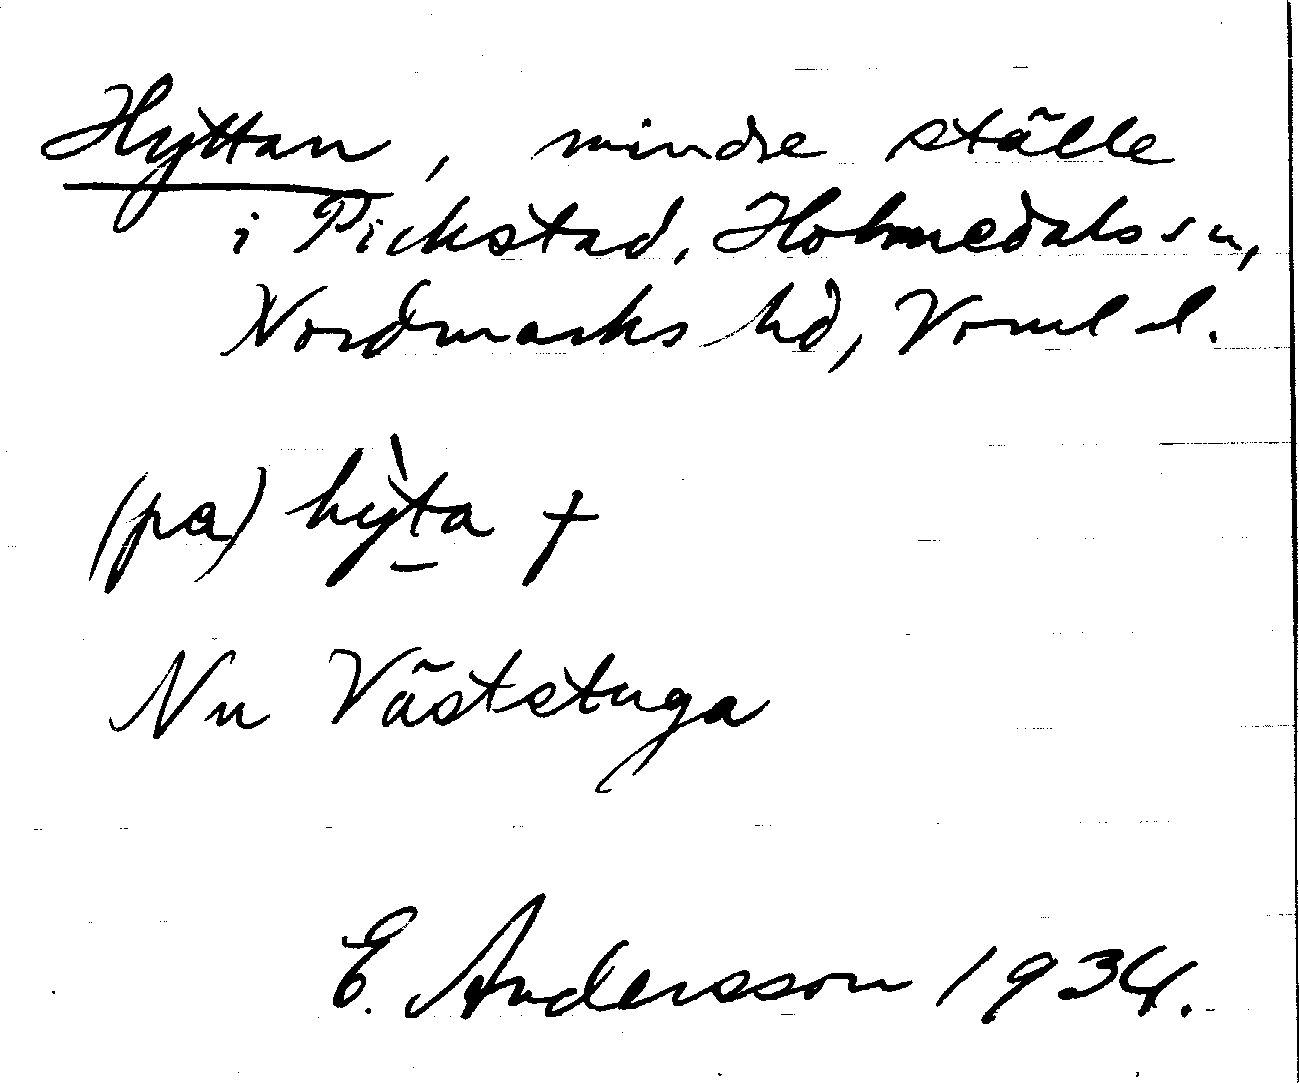 Hyttan, mindre ställe
i Pickstad, Holmedals sn,
Nordmarks hd, Vrml l.
(pa) hy̌ta +
Nu Väststuga
E. Andersson 1934.